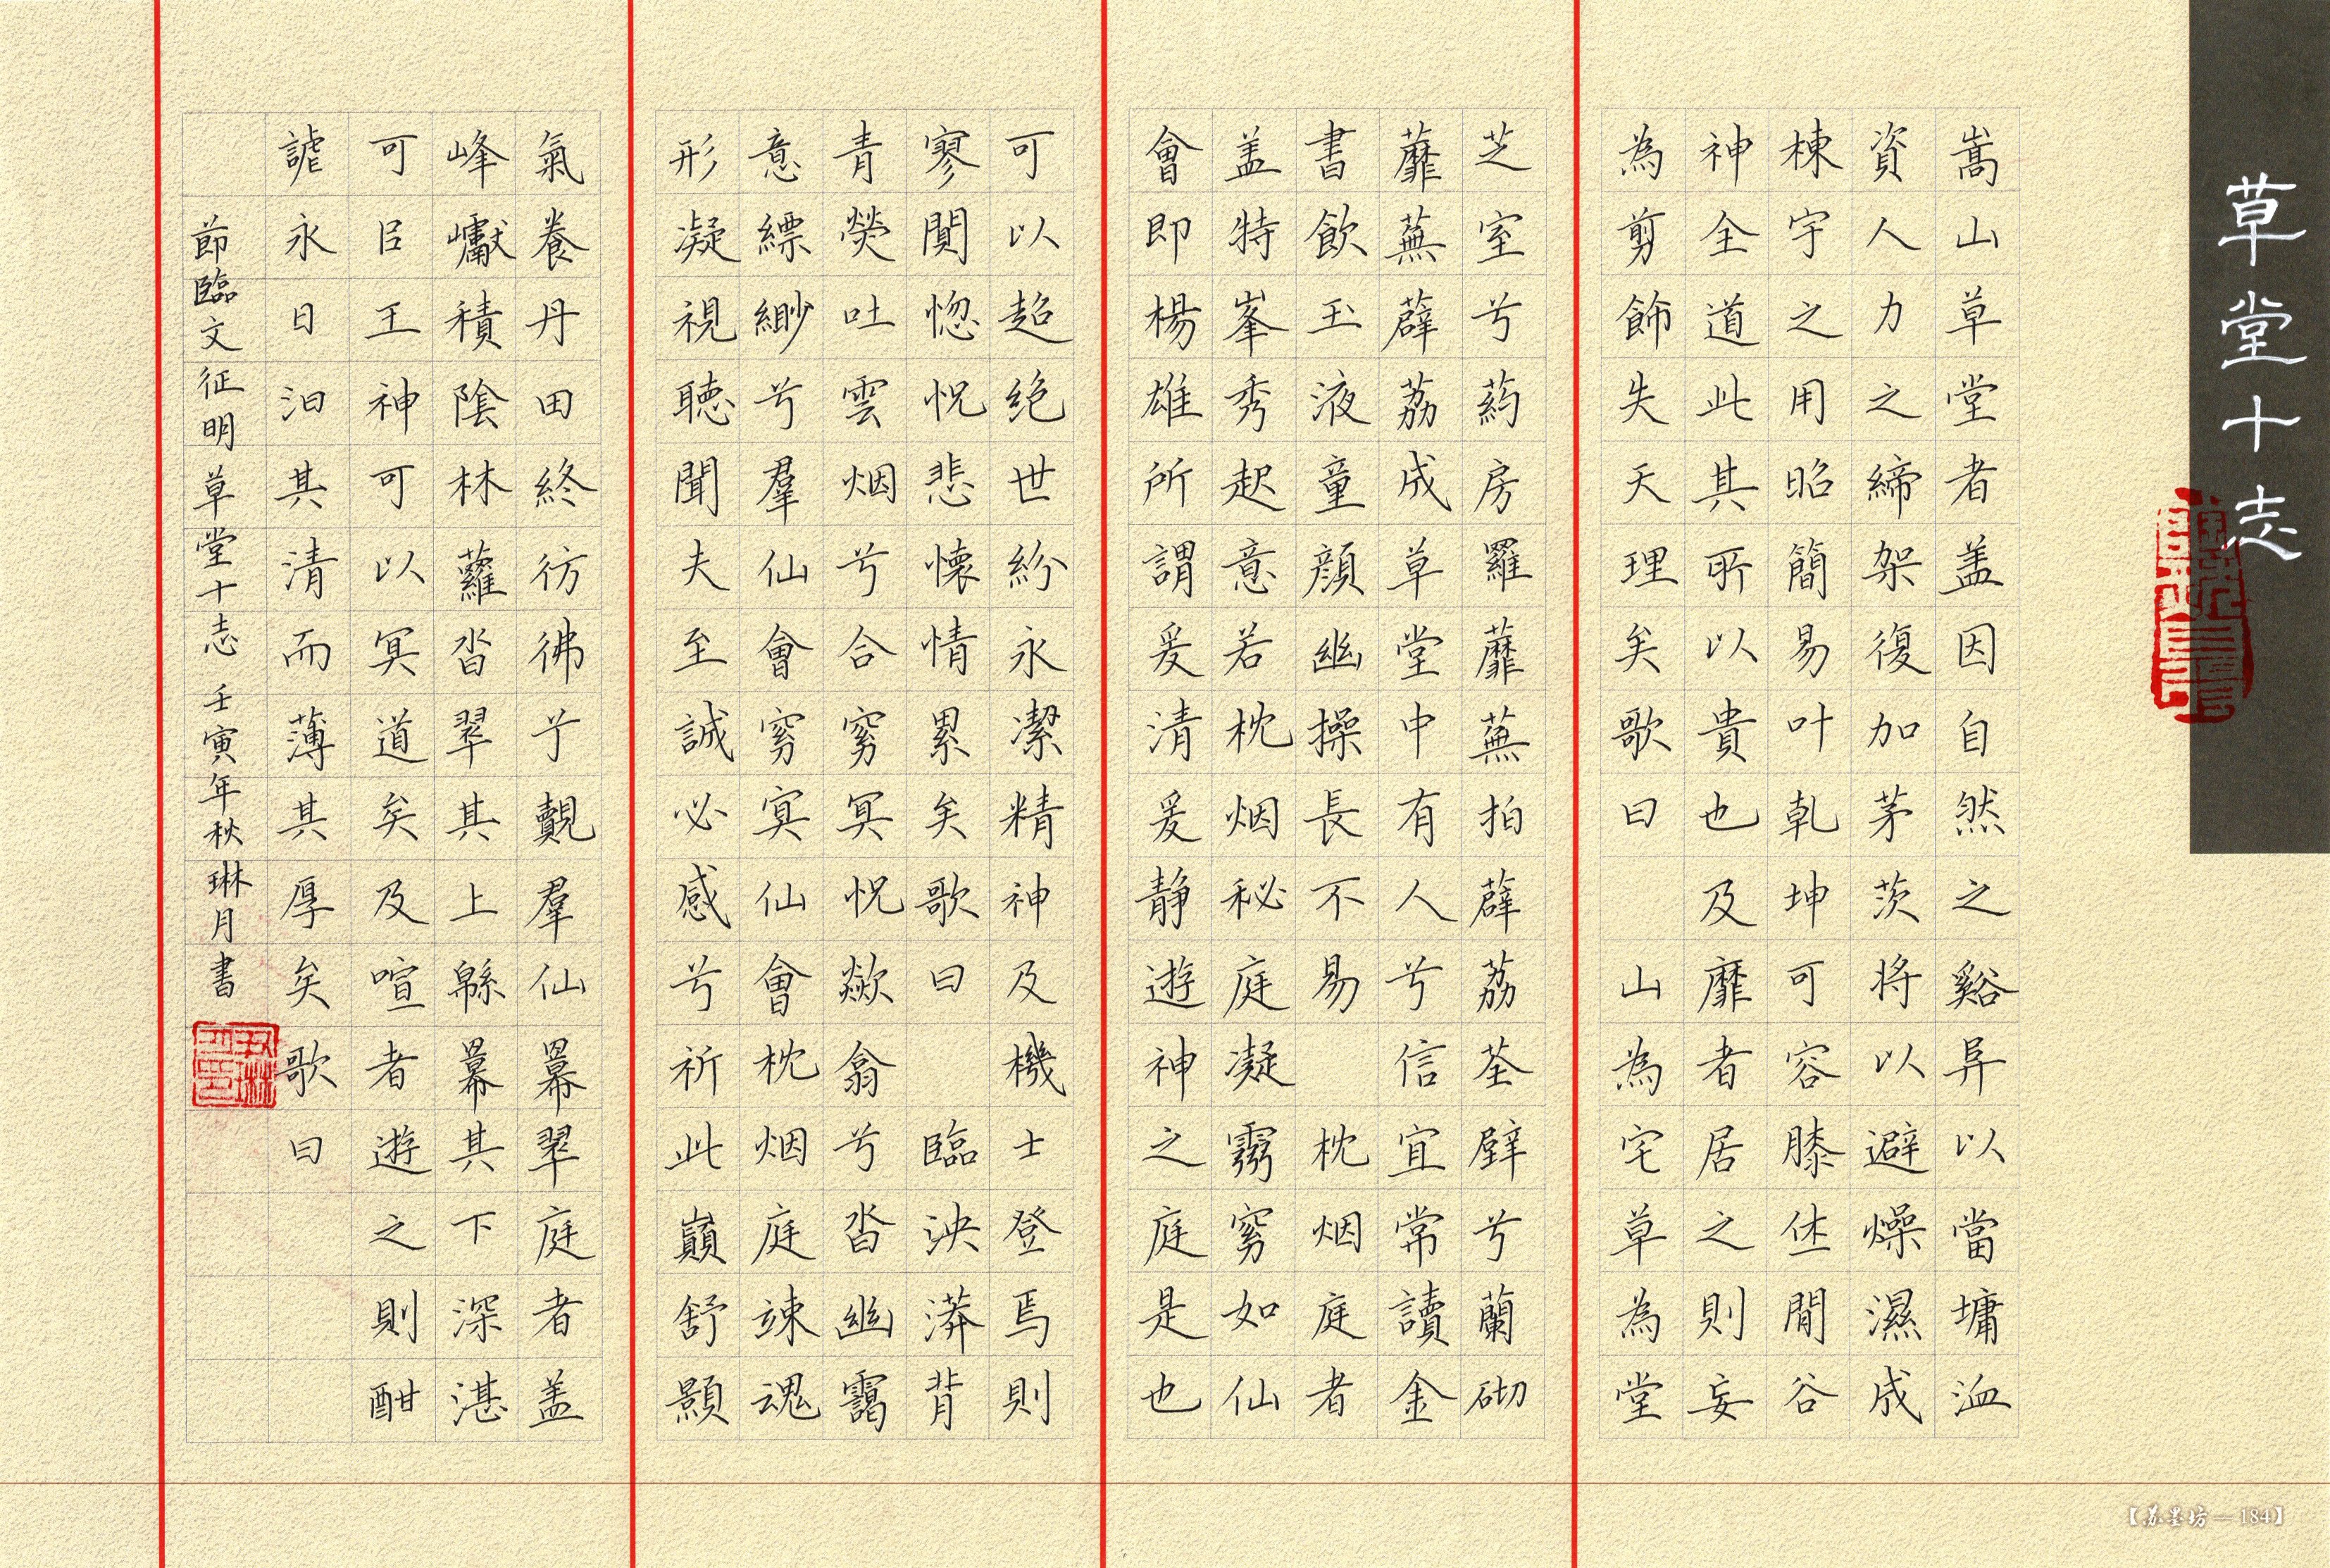 草堂十志
嵩山草堂者盖因自然之谿异以當墉洫
資人力之締架復加茅茨将以避燥濕成
棟宇之用昭簡易叶乾坤可容膝伾閒谷
神全道此其所以貴也及靡者居之則妄
為剪飾失天理矣歌曰 山為宅草為堂
芝室兮葯房羅蘼蕪拍薜荔荃壁兮蘭砌
蘼蕪薜荔成草堂中有人兮信宜常讀金
書飲玉液童顔幽操長不易 枕烟庭者
盖特峯秀起意若枕烟秘庭凝 窮如仙
會即楊雄所謂爰清爰静遊神之庭是也
可以超绝世紛永潔精神及機士登焉則
寥閴惚怳悲懷情累矣歌曰 臨泱漭背
青熒吐雲烟兮合窮冥怳歘翕兮沓幽靄
意縹緲兮羣仙會窮冥仙會枕烟庭竦魂
形凝視聽聞夫至誠必感兮祈此巔舒顥
氣養丹田終彷彿兮覿羣仙羃翠庭者盖
峰巘積陰林蘿沓翠其上緜羃其下深湛
可㠯王神可以冥道矣及喧者遊之則酣
謔永日汩其清而薄其厚矣歌曰
節臨文征明草堂十志 壬寅年秋琳月書
【苏墨坊—184】